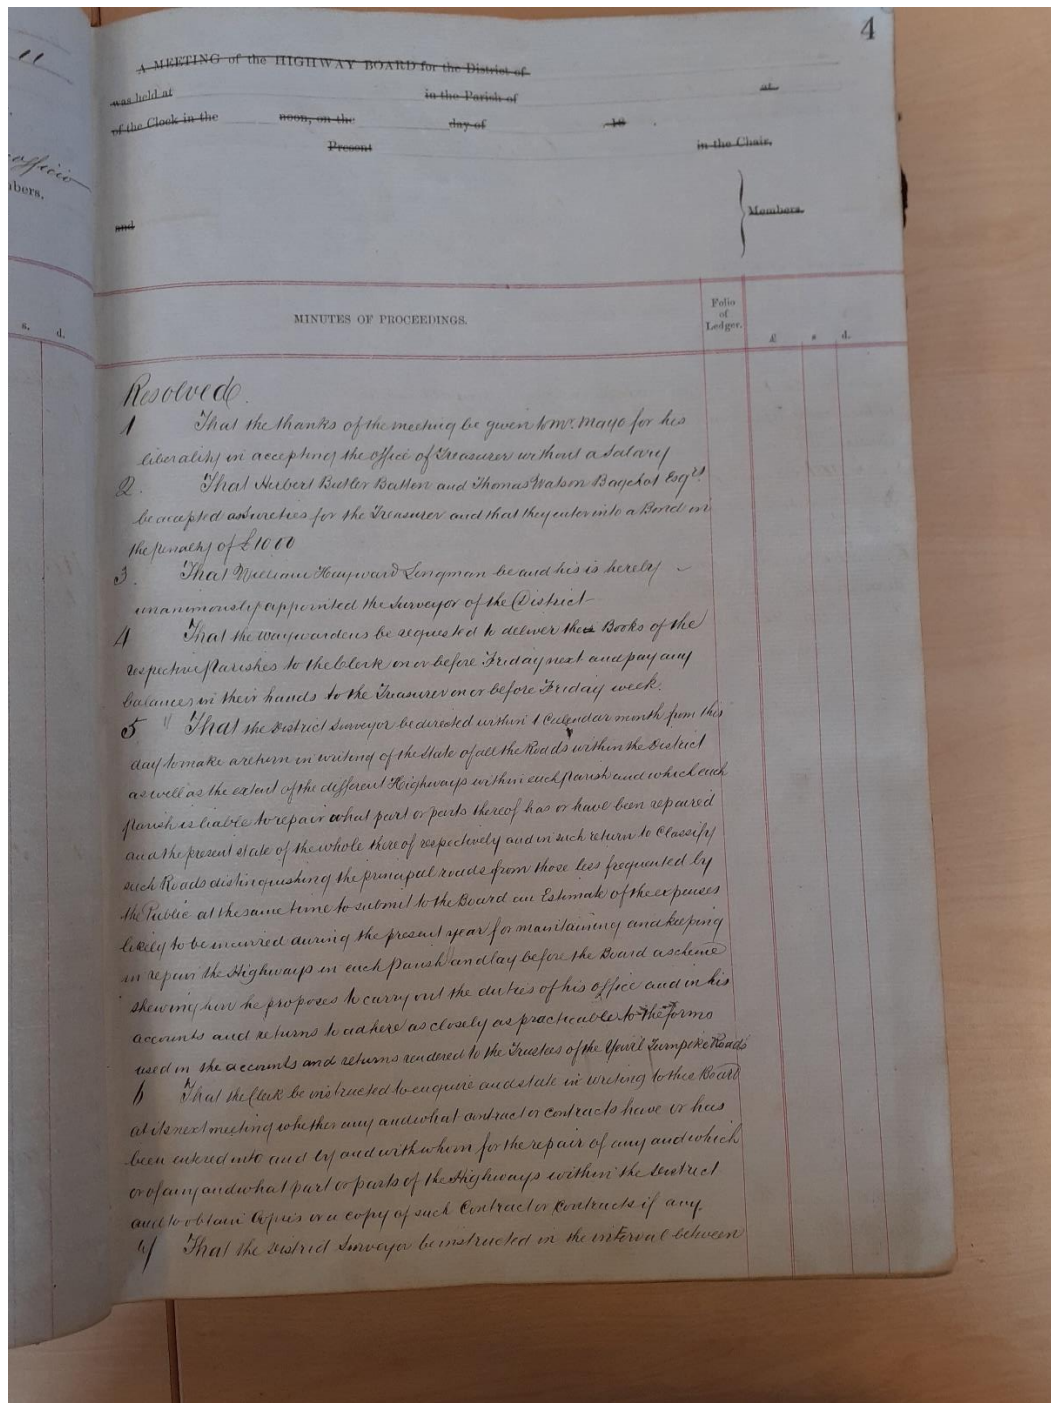 4
11
officio
bers.
s. d.
A MEETING of the HIGHWAY BOARD for the District of
was held at in the Parish of at
of the Clock in the noon, on the day of 18
Present in the Chair,
and Members.
MINUTES OF PROCEEDINGS.
Folio
of
Ledger.
£ s d.
Resolved.
1 That the thanks of the meeting be given to Mr. Mayo for his
liberality in accepting the office of Treasurer without a Salary
2. That Herbert Butler Batten and Thomas Watson Bagehot Esqrs.
be accepted as Sureties for the Treasurer and that they enter into a Bond in
the penalty of £1000
3. That William Hayward Singman be and his is hereby
unanimously appointed the Surveyor of the District
4 That the waywardens be requested to deliver the Books of the
respective Parishes to the Clerk on or before Friday next and pay any
balances in their hands to the Treasurer on or before Friday week.
5 That the District Surveyor be directed within 1 Calendar month from this
day to make a return in writing of the State of all the Roads within the District
as well as the extent of the different Highways within each Parish and which each
Parish is liable to repair what part or parts thereof has or have been repaired
and the present state of the whole thereof respectively and in such return to Classify
such Roads distinguishing the principal roads from those less frequented by
the Public at the same time to submit to the Board an Estimate of the expenses
likely to be incurred during the present year for maintaining and keeping
in repair the Highways in each Parish and lay before the Board a scheme
shewing how he proposes to carry out the duties of his office and in his
accounts and returns to adhere as closely as practicable to the Forms
used in the accounts and returns rendered to the Trustees of the Yeovil Turnpike Roads
6 That the Clerk be instructed to enquire and state in writing to this Board
at its next meeting whether any and what contract or contracts have or has
been entered into and by and with whom for the repair of any and which
or of any and what part or parts of the Highways within the District
and to obtain Copies or a copy of such Contract or Contracts if any.
7 That the District Surveyor be instructed in the interval between